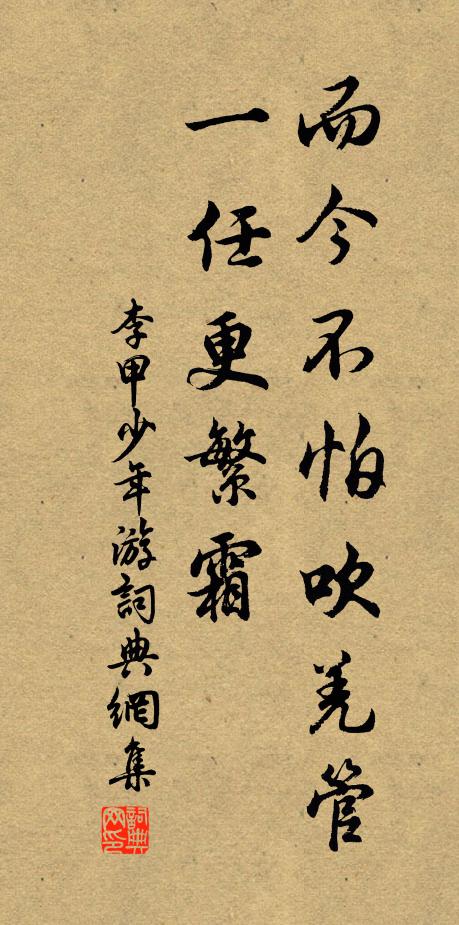 而今不怕吹羌管
一任更繁霜
李甲少年游詞典網集
詞典网印